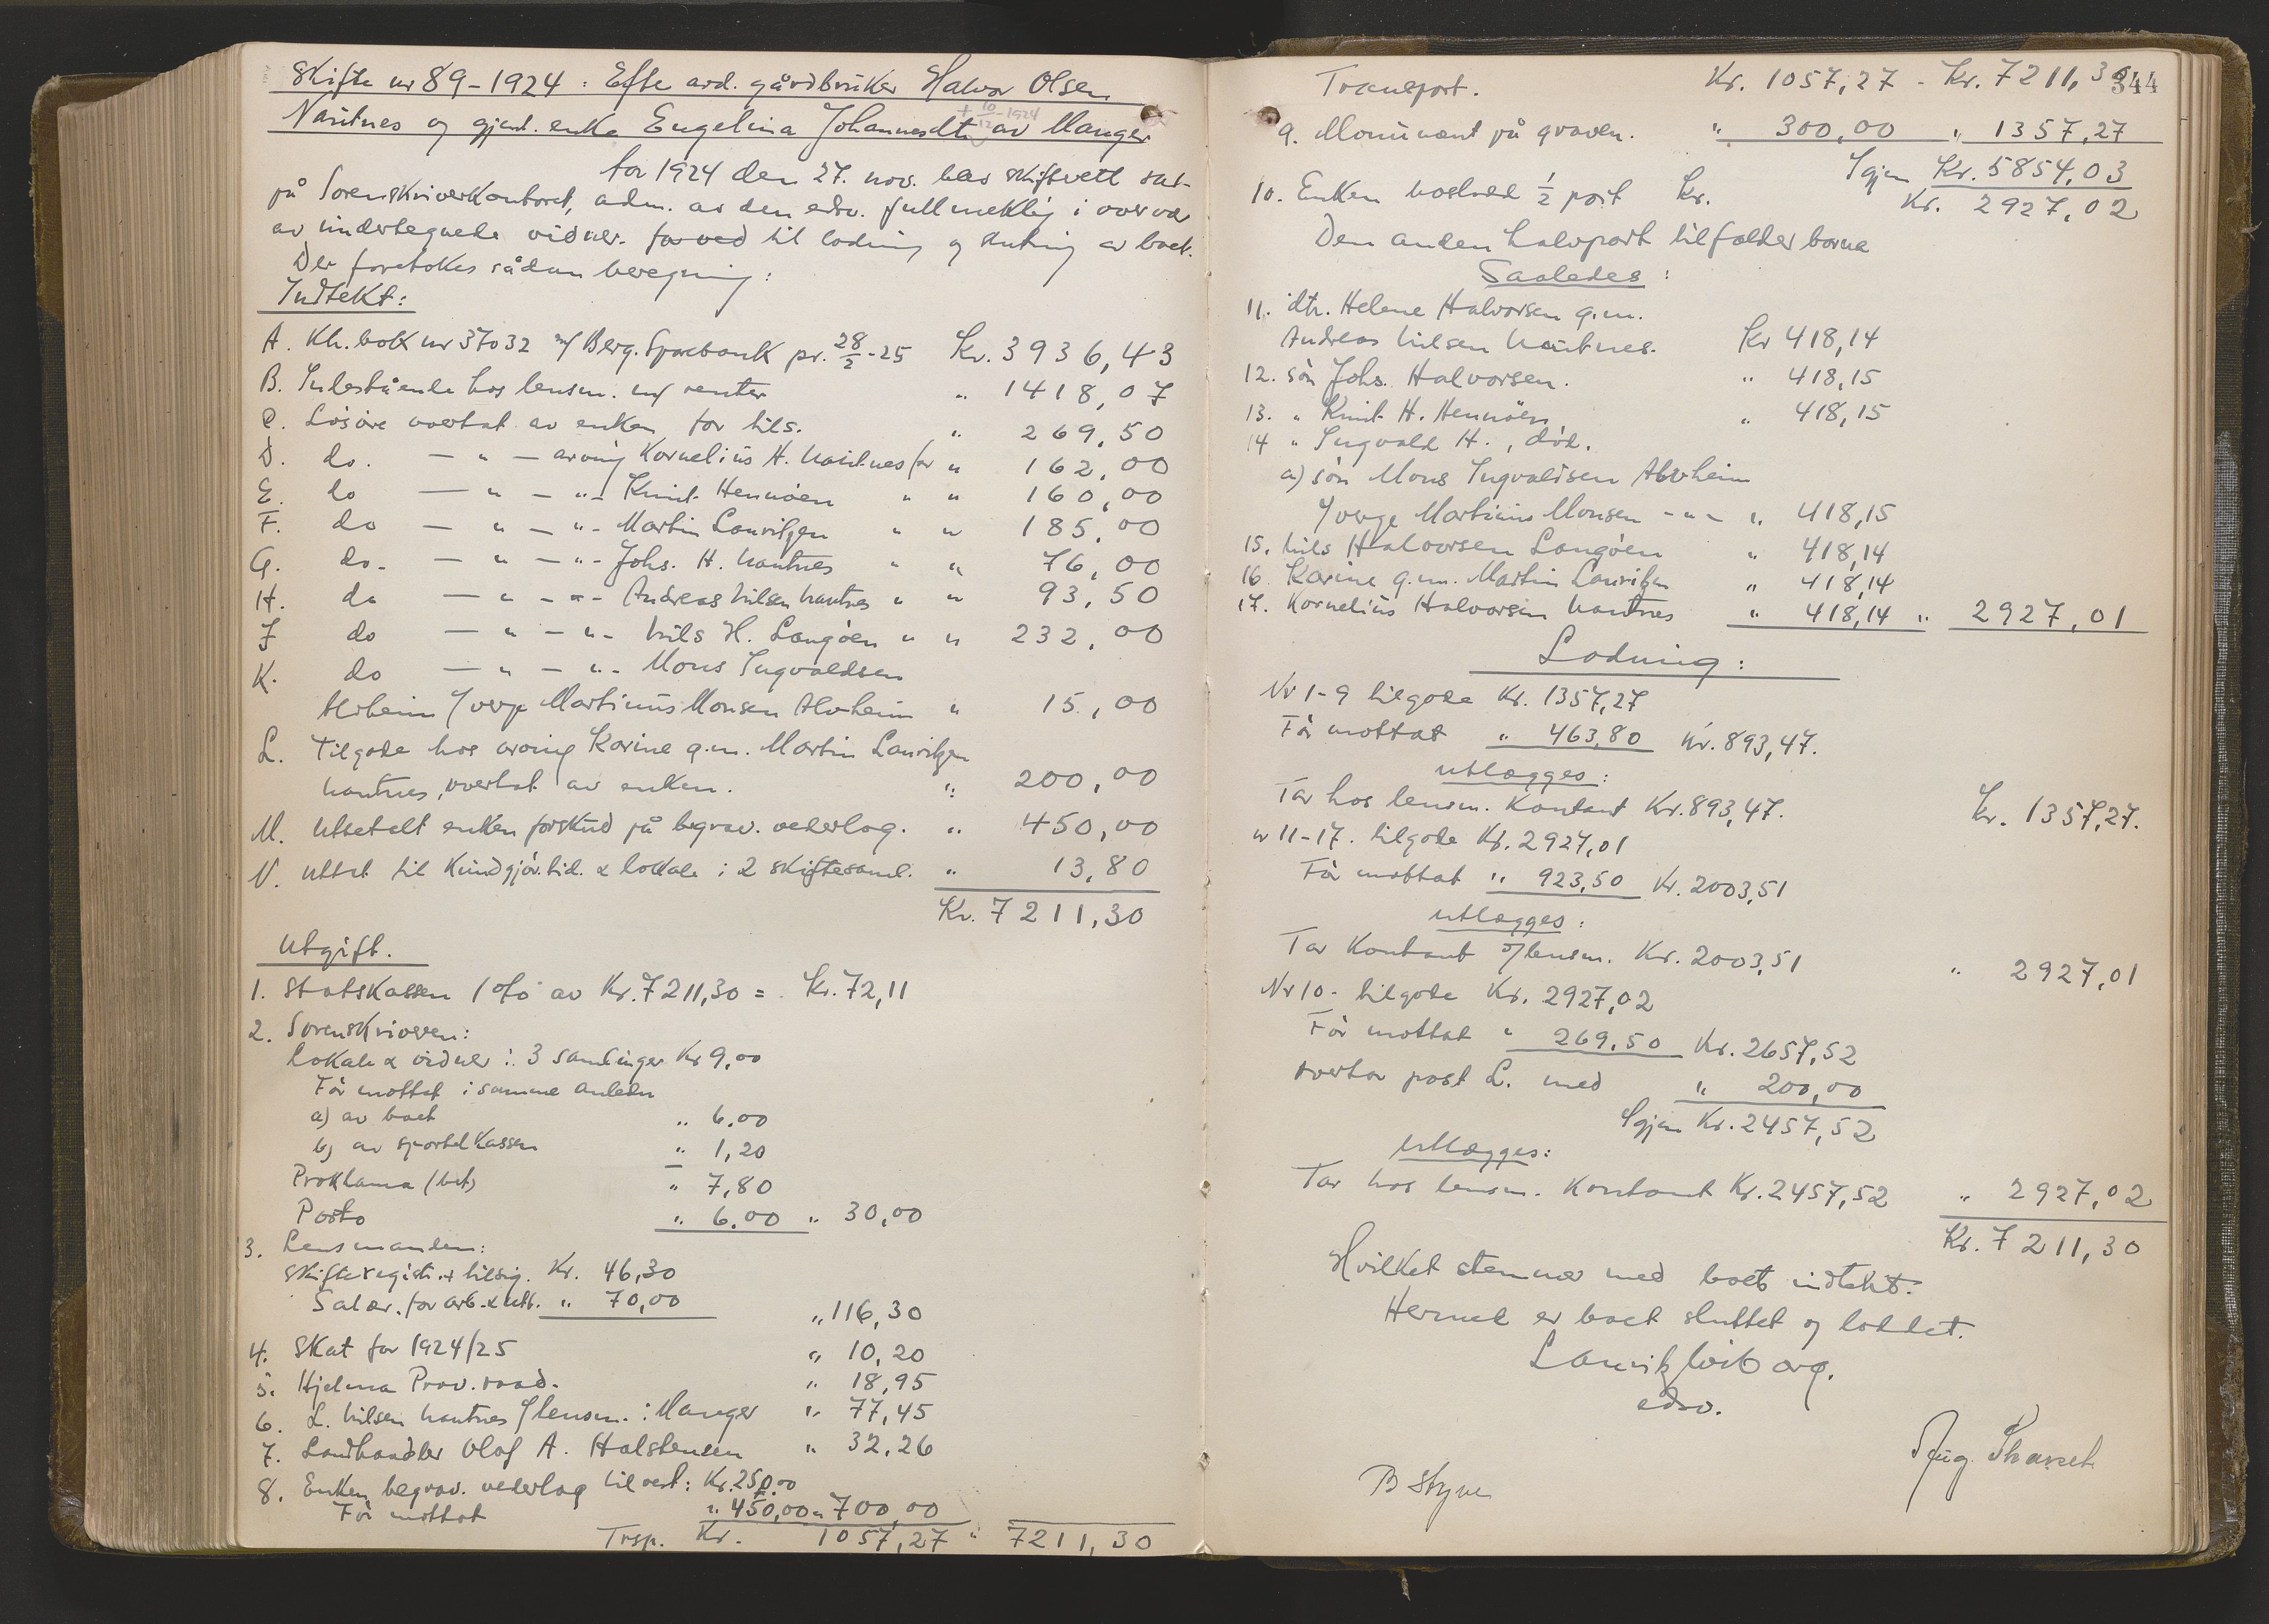 Skifte nr 89-1924: Efte avd. gårdbruker Halvor Olsen
Nautnes og gjenl. enke Engelina Johannesdtr. av Manger
+ 10/12-1924
Aar 1924 den 27. nov. blev skifterett sat
på Sorenskriverkontoret, adm. av den edsv. fullmektig i overvær
av undertegnede vidner. for ved til lodning og slutning av boet.
Der foretokes sådan beregning:
Indtekt:
A. Kh. bok nr 37032 m/ Berg. Sparebank pr. 28/2-25 Kr. 3936,43
B. Indestående hos lensm. m/ renter " 1418,07
C. Lösöre overtat av enken for tils. " 269,50
D. do. — " — arving Kornelius H. Nautnes for " 162,00
E. do — " — " - Knut Hennöen " " 160,00
F. do — " — " - Martin Lauritzen " " 185,00
G. do. — " — " - Johs. H. Nautnes " " 76,00
H. do — " — " - Andreas Nilsen Nautnes " " 93,50
J do — " — " - Nils H. Langöen " " 232,00
K. do — " — " - Mons Ingvaldsen
Alvheim / verge Martinus Monsen Alvheim " 15,00
L. Tilgode hos arving Karine g.m. Martin Lauritzen
Nautnes, overtat av enken. " 200,00
M. Utbetalt enken forskud på begrav. vederlag. " 450,00
N. uttat til kundgjör. tid. & lokale i 2 skiftesaml. " 13,80
Kr. 7211,30
Utgift.
1. Statskassen 1% av Kr. 7211,30 = Kr. 72,11
2. Sorenskriveren:
Lokale & vidner i 3 samlinger Kr 9,00
För mottat i samme anledn
a) av boet " 6,00
b) av sportelkassen " 1,20
Proklama (bet) " 7,80
Porto " 6,00 " 30,00
3. Lensmanden:
Skifteregistr. & tilsig. Kr. 46,30
Salær. for arb. & utb. " 70,00 " 116,30
4. Skat for 1924/25 " 10,20
5. Hjelma Prov. raad. " 18,95
6. L. Nilsen Nautnes / lensm. i Manger " 77,45
7. Landhandler Olaf A. Halstensen " 32,26
8. Enken begrav. vederlag til rest: Kr. 250,00
För mottat " 450,00 " 700,00
Trsp. Kr. 1057,27 " 7211,30
344
Transport. Kr. 1057,27 - Kr. 7211,30
9. Monument på graven. " 300,00 " 1357,27
Igjen Kr. 5854,03
10. Enken boslod 1/2 part Kr. Kr. 2927,02
Den anden halvpart tilfalder barna
Saaledes:
11. dtr. Helene Halvorsen g.m.
Andreas Nilsen Nautnes. Kr 418,14
12. sön Johs. Halvorsen. " 418,15
13. " Knut H. Hennöen " 418,15
14 " Ingvald H., död.
a) sön Mons Ingvaldsen Alvheim
/ verge Martinus Monsen - " - " 418,15
15. Nils Halvorsen Langöen " 418,14
16. Karine g.m. Martin Lauritzen " 418,14
17. Kornelius Halvorsen Nautnes " 418,14 " 2927,01
Lodning:
Nr 1-9 tilgode Kr. 1357,27
För mottat " 463,80 Kr. 893,47.
utlægges:
Tar hos lensm. Kontant Kr. 893,47. Kr. 1357,27.
nr 11-17. tilgode Kr. 2927,01
För mottat " 923,50 Kr. 2003,51
utlægges:
Tar Kontant o/lensm. Kr. 2003,51 " 2927,01
Nr 10- tilgode Kr. 2927,02
För mottat " 269,50 Kr. 2657,52
overtar post L. med " 200,00
Igjen Kr. 2457,52
Utlægges:
Tar hos lensm. Kontant Kr. 2457,52 " 2927,02
Kr. 7211,30
Hvilket stemmer med boets indtekt.
Hermed er boet sluttet og loddet.
edsv.
B Styve Aug.